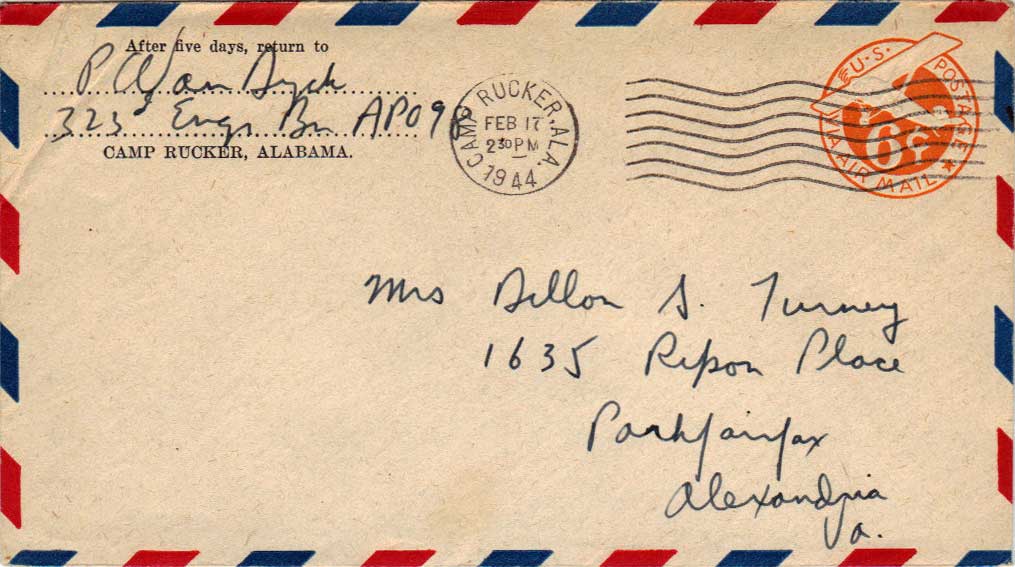 After five days, return to
P Van Dyck
323 Engr Bn APO 98
CAMP RUCKER, ALABAMA.
CAMP RUCKER, ALA.
FEB 17
2 30 PM
1944
U.S. POSTAGE
6¢
VIA AIR MAIL
Mrs Dillon S. Turney
1635 Ripon Place
Parkfairfax
Alexandria
Va.